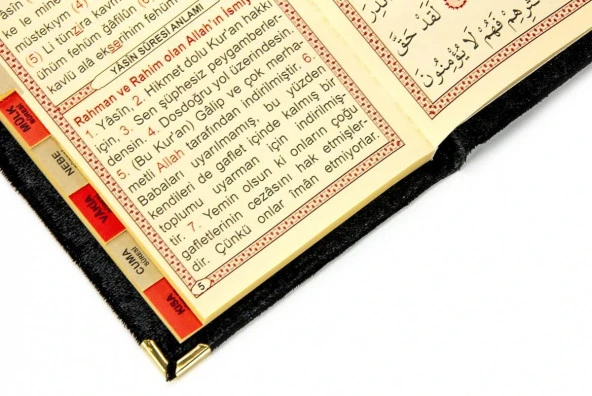 müstekıym (4)
(5) Li tünzira kavm
ühüm fehüm ğâfilûn
kavlü alâ ekserihim fehüm
YÂSİN SÛRESİ ANLAMI
Rahman ve Rahim olan Allah'ın ismiy
1. Yâsîn, 2. Hikmet dolu Kur'an hakkı
için, 3. Sen şüphesiz peygamberler-
densin. 4. Dosdoğru yol üzerindesin.
5. (Bu Kur'an) Gâlip ve çok merha-
metli Allah tarafından indirilmiştir. 6.
Babaları uyarılmamış, bu yüzden
kendileri de gaflet içinde kalmış bir
toplumu uyarman için indirilmiş-
tir. 7. Yemin olsun ki onların çoğu
gafletlerinin cezâsını hak etmişler-
dir. Çünkü onlar îmân etmiyorlar.
5
لَقَدْ حَقَّ
فَهُمْ لَا يُؤْمِنُونَ
MÜLK
SÛRESİ
NEBE
VÂKIA
CUMA
SÛRESİ
KISA